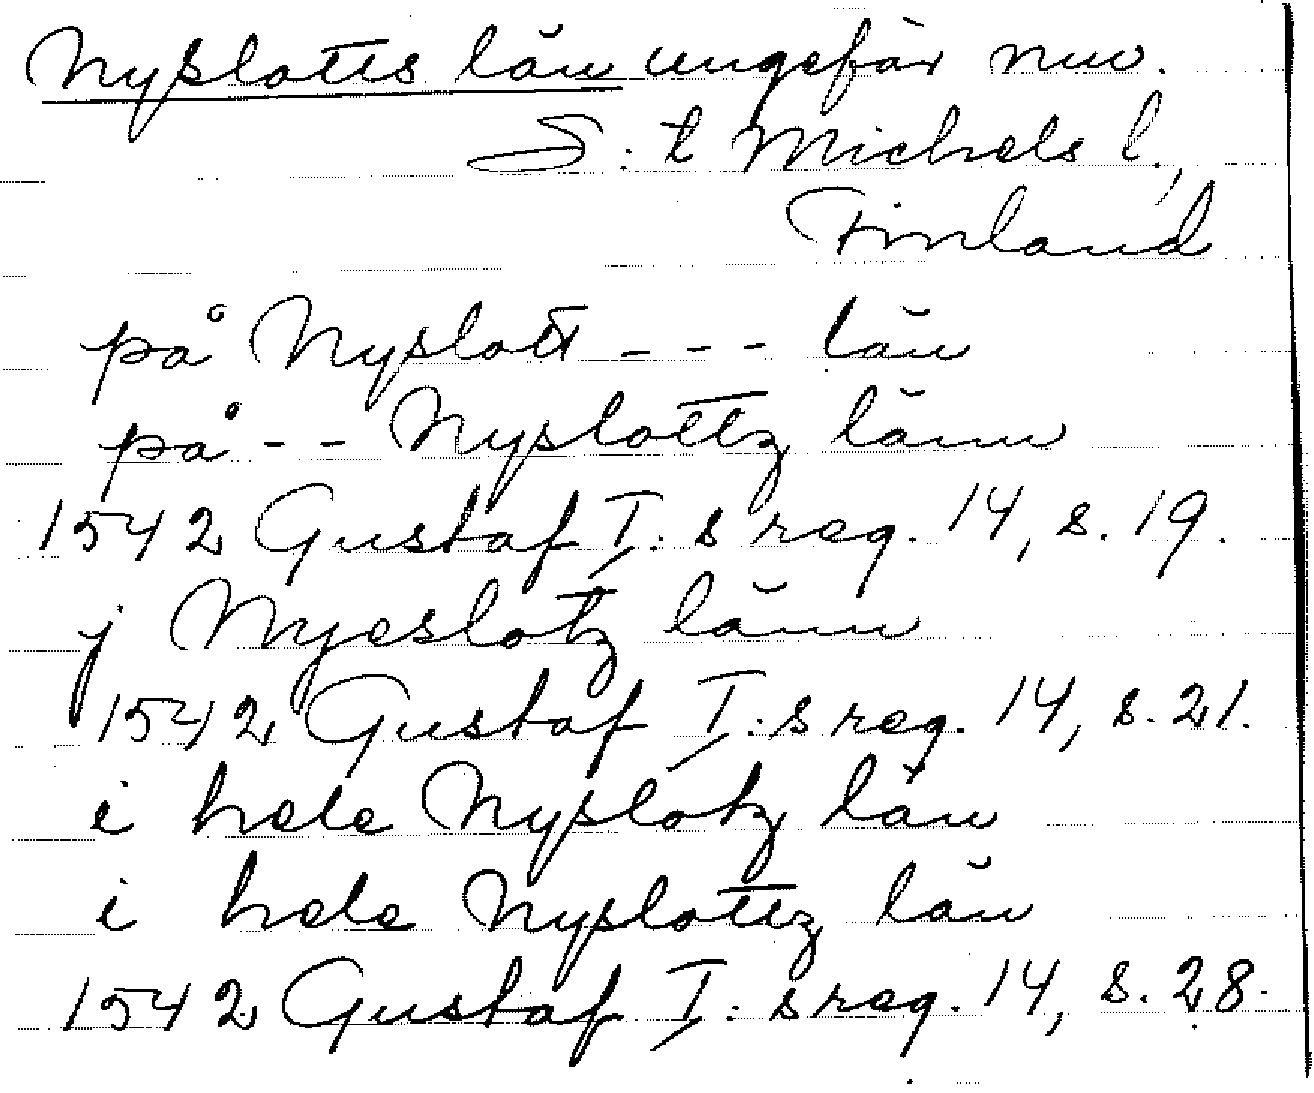 Nyslotts län ungefär nuv.
S:t Michels l.,
Finland
på Nyslott - - - län
på - - Nyslottz länn
1542 Gustaf I:s reg. 14, s. 19.
j Nyeslotz länn
1542 Gustaf I:s reg. 14, s. 21.
i hele Nyslotz län
i hele Nyslottz län
1542 Gustaf I:s reg. 14, s. 28.